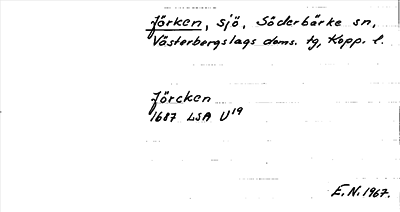 Jörken, sjö, Söderbärke sn,
Västerbergslags doms. tg, Kopp. l.
Jörcken
1687 LSA U19
E.N. 1967.